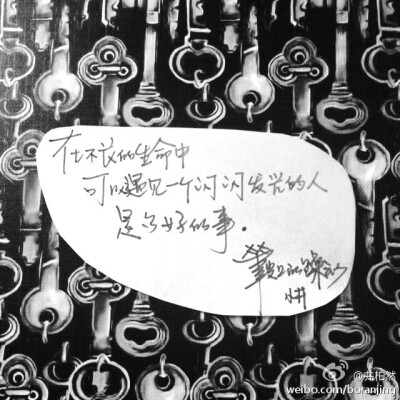 在不长的生命中
可以遇见一个闪闪发光的人
是多好的事。
小井
@井柏然
weibo.com/boranjing